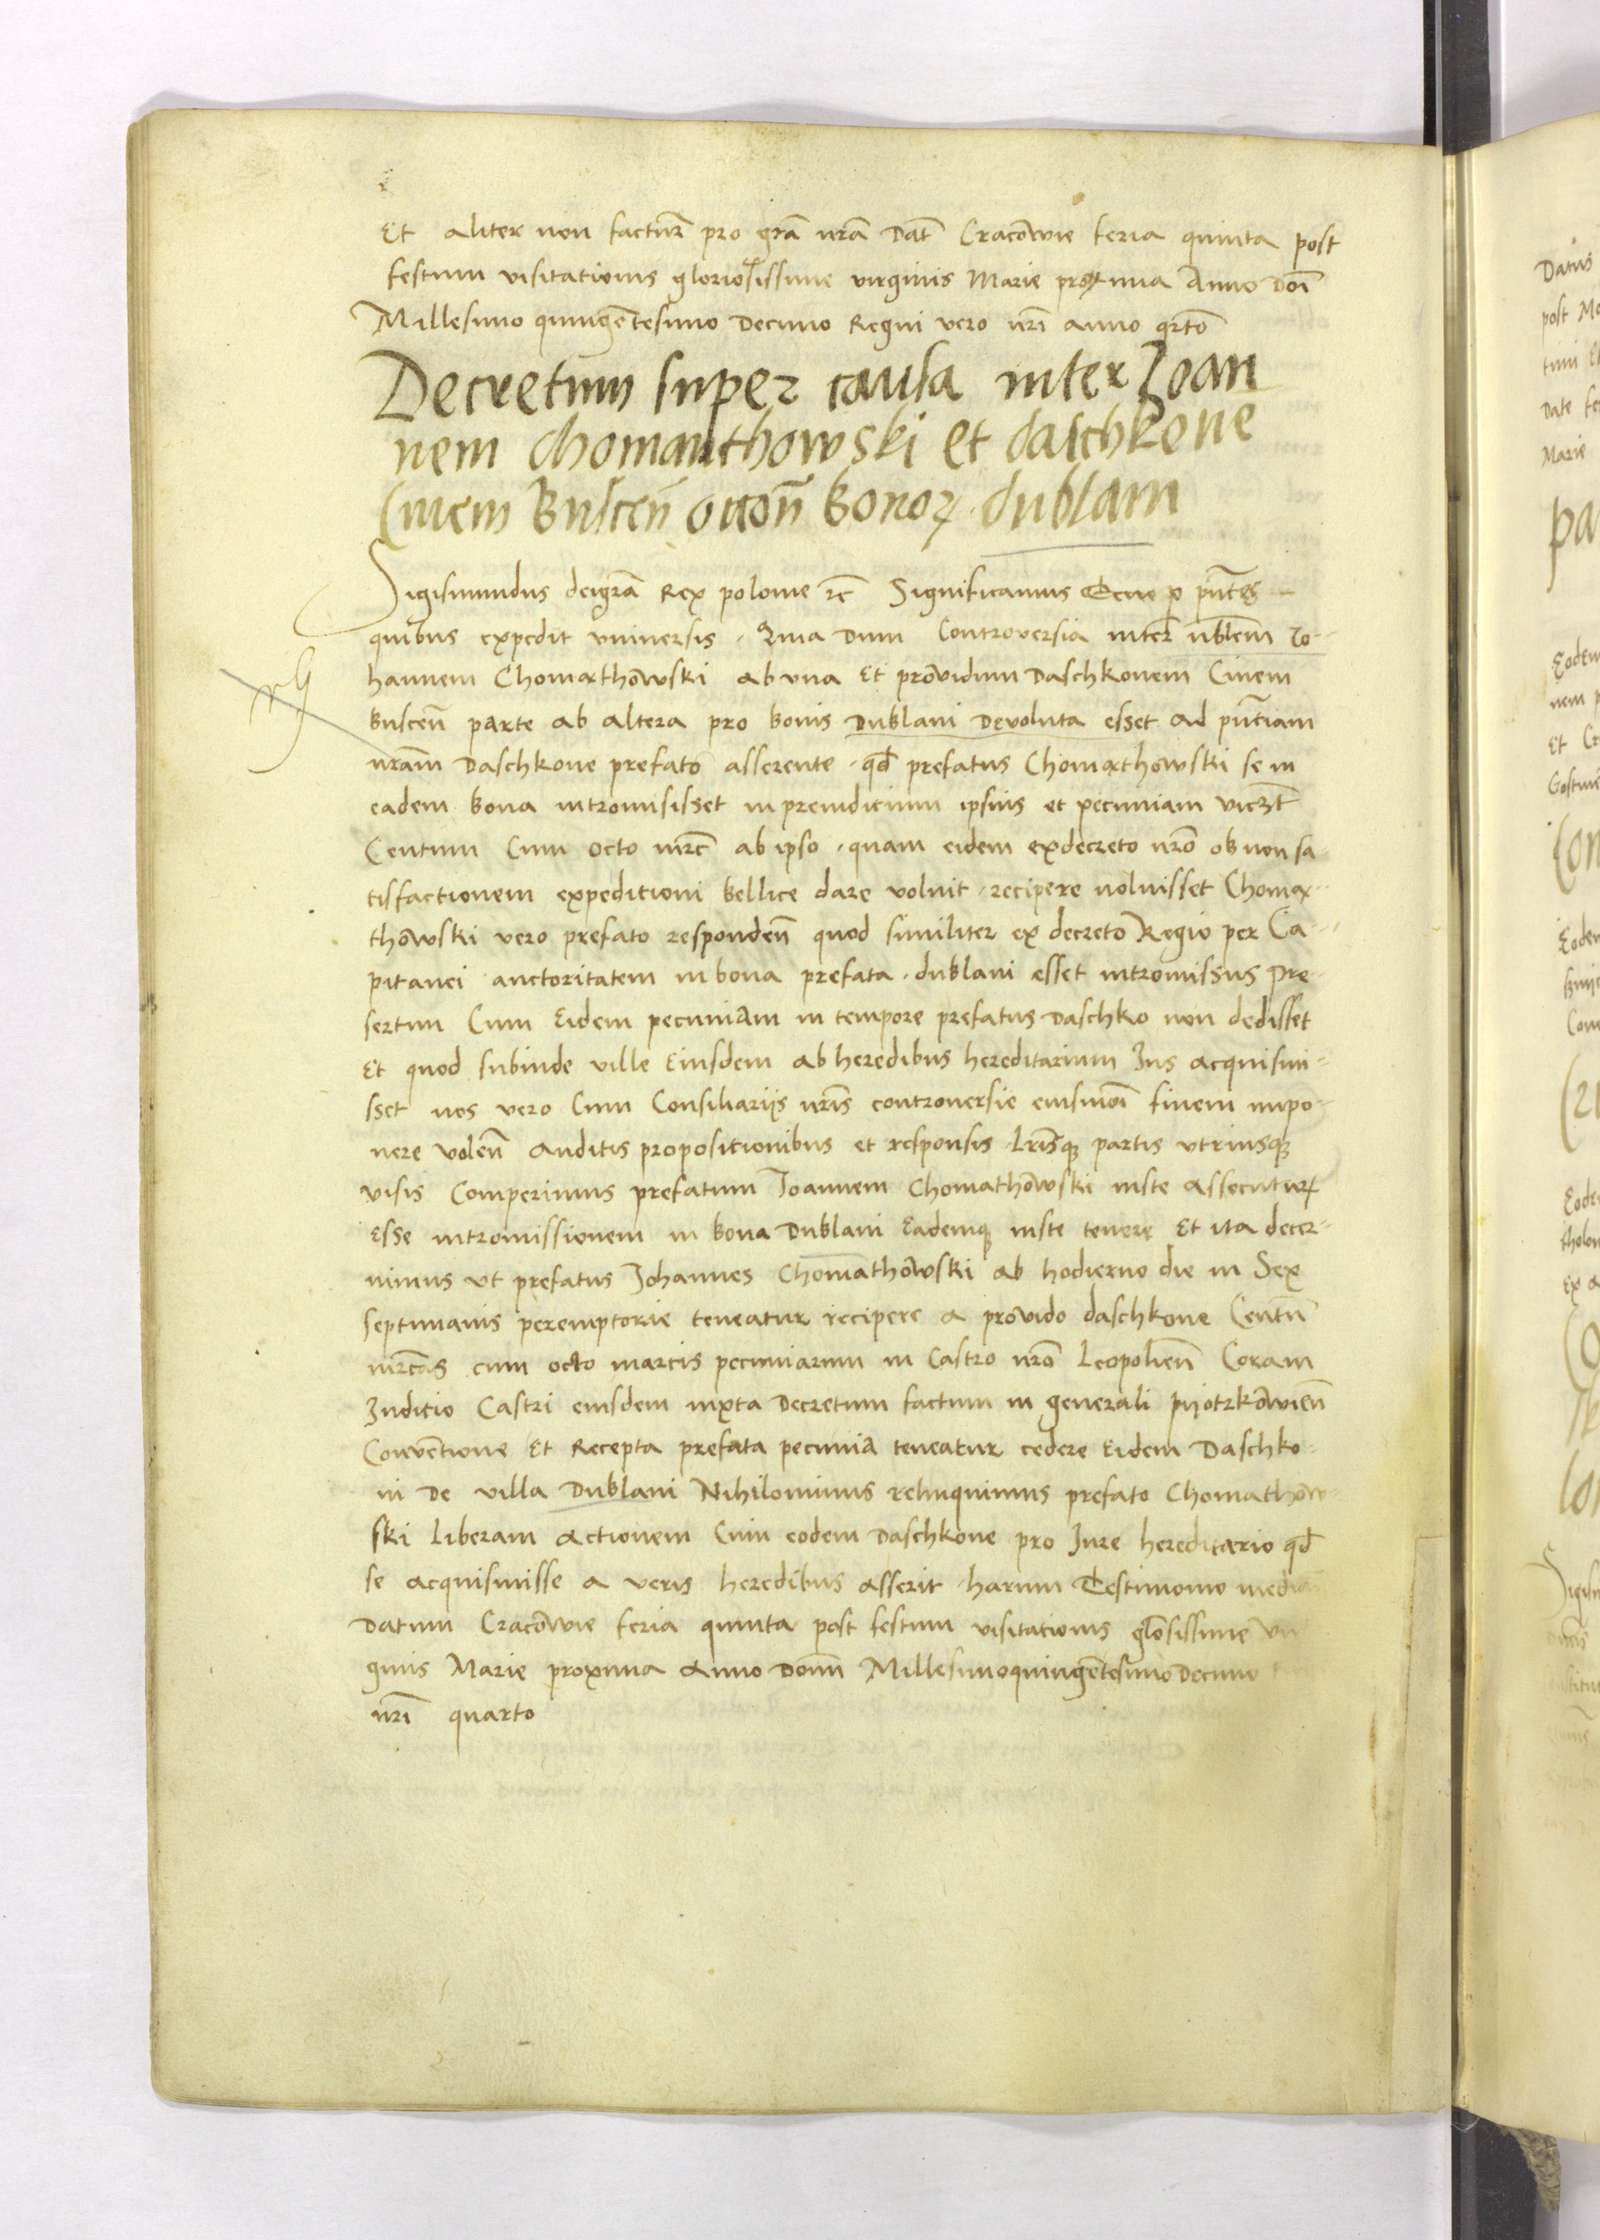 Et aliter non factur̄ pro gr̄a nr̄a Dat̄ Cracōwie feria quinta post
festum visitationis gloriosissime virginis Marie proxima Anno Doī
Millesimo quingētesimo Decimo Regni vero nr̄i anno qrto
Decretum super causa inter Joan
nem Chomanthowski et daschkone
Civem Buscen̄ occōn̄ bonoꝝ dublani
Sigismundus deigrā Rex polonie ꝛc̄ Significamus Tenore pn̄tes
quibus expedit vniversis . Quia Dum Controversia inter nb̄lem Jo-
hannem Chomathōwski ab vna Et prōvidum Daschkonem Civem
buscen̄ parte ab altera pro bonis Dublani Devoluta esset ad pn̄tiam
nrām Daschkone prefato asserente . qd̄ prefatus Chomathowski se in
eadem bona intromisisset in preiudicium ipsius et pecuniam vicꝫt
Centum Cum octo mrc̄ ab ipso . quam eidem exdecreto nr̄o ob non sa
tisfactionem expeditioni bellice dare voluit . recipere noluisset Choma-
thōwski vero prefato responden̄ quod similiter ex decreto Regio per Ca-
pitanei auctoritatem in bona prefata . dublani esset intromissus Pre-
sertim Cum Eidem pecuniam in tempore prefatus Daschko non dedisset
Et quod subinde ville Eiusdem ab heredibus hereditarium Jus acquisivi-
sset nos vero Cum Consiliarijs nr̄is controversie eiusmōi finem impo-
nere volen̄ Auditis propositionibus et responsis Lrīsqꝫ partis vtriusqꝫ
visis Comperimus prefatum Joannem Chomathōwski iuste assecutur
Esse intromissionem in bona Dublani Eademqꝫ iuste tenere Et ita decer-
nimus vt prefatus Johannes Chomathōwski ab hodierno die in Sex
septimanis peremptorie teneatur recipere a prōvido daschkone Centū
mrcas cum octo marcis pecuniarum in Castro nrō Leopolien̄ Coram
Judicio Castri eiusdem iuxta Decretum factum in generali pijotrkōwien̄
Conventione Et Recepta prefata pecunia teneatur cedere Eidem Daschko-
ni De villa Dublani Nihilominus relinquimus prefato Chomathōw-
ski Liberam actionem Cum eodem Daschkone pro Jure hereditario qd̄
se acquisivisse a veris heredibus asserit . harum Testimonio media
Datum Cracōwie feria quinta post festum visitationis glōsissime vir
ginis Marie proxima anno Domī Millesimoquingētesimo Decimo
nr̄i quarto